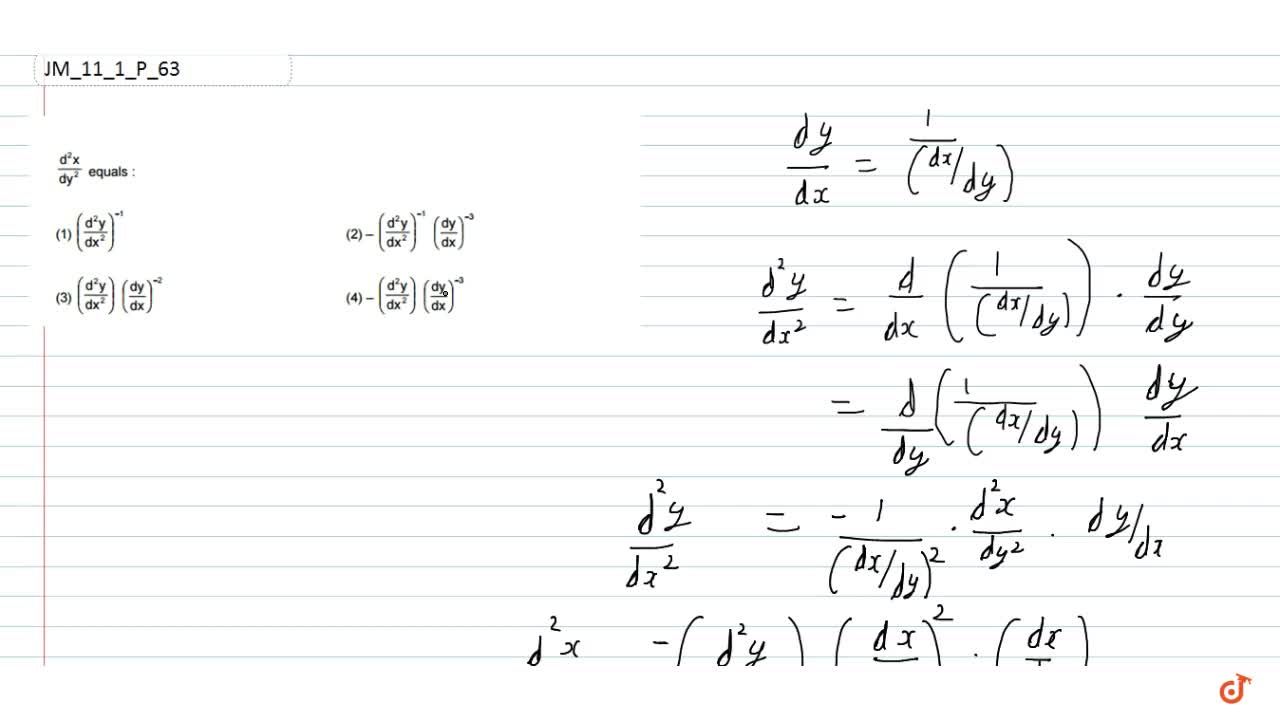 JM_11_1_P_63
d²x/dy² equals :
(1) (d²y/dx²)⁻¹ (2) – (d²y/dx²)⁻¹ (dy/dx)⁻³
(3) (d²y/dx²) (dy/dx)⁻² (4) – (d²y/dx²) (dy/dx)⁻³
dy/dx = 1/(dx/dy)
d²y/dx² = d/dx (1/(dx/dy)) · dy/dy
= d/dy (1/(dx/dy)) dy/dx
d²y/dx² = -1/(dx/dy)² · d²x/dy² · dy/dx
d²x -(d²y ) (dx )² · (dx )